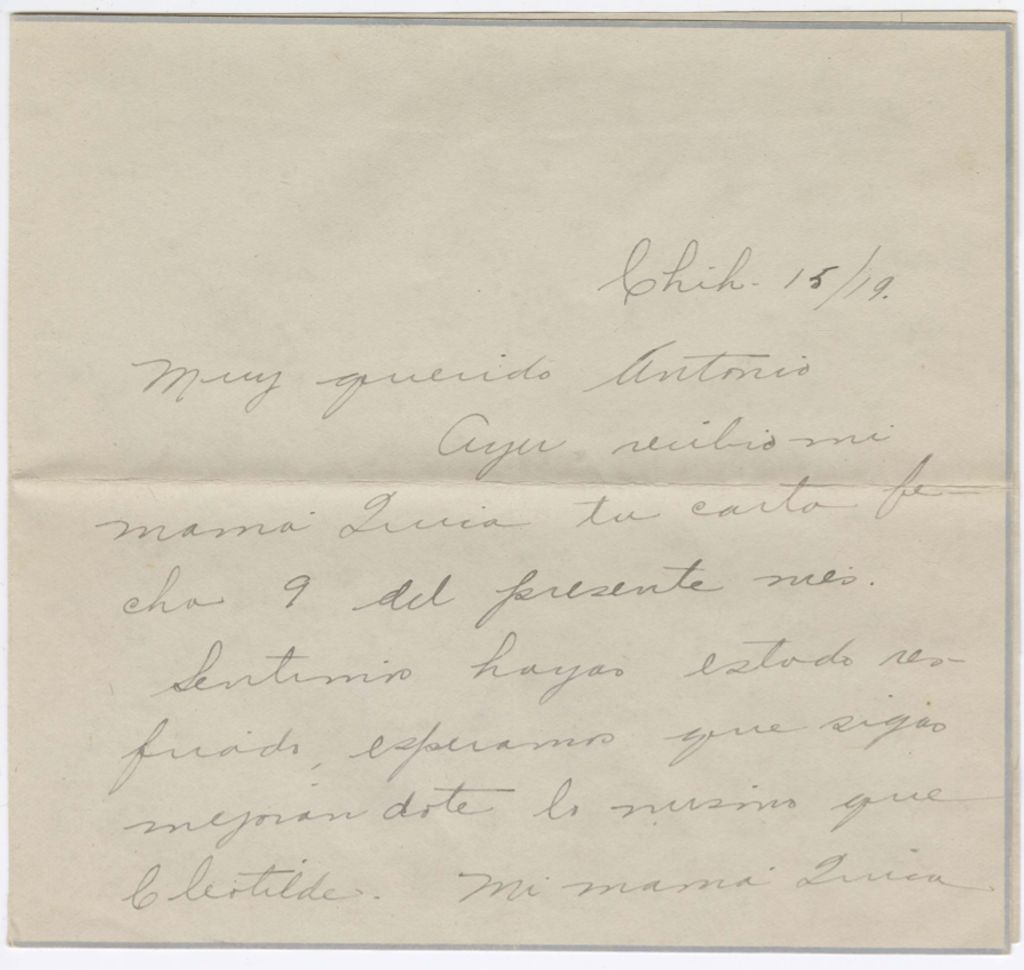 Chih. 15/19.
Muy querido Antonio
Ayer recibio mi
mamá Quica tu carta fe-
cha 9 del presente mes.
Sentimos hayas estado res-
friado, esperamos que sigas
mejorándote lo mismo que
Cleotilde. Mi mamá Quica